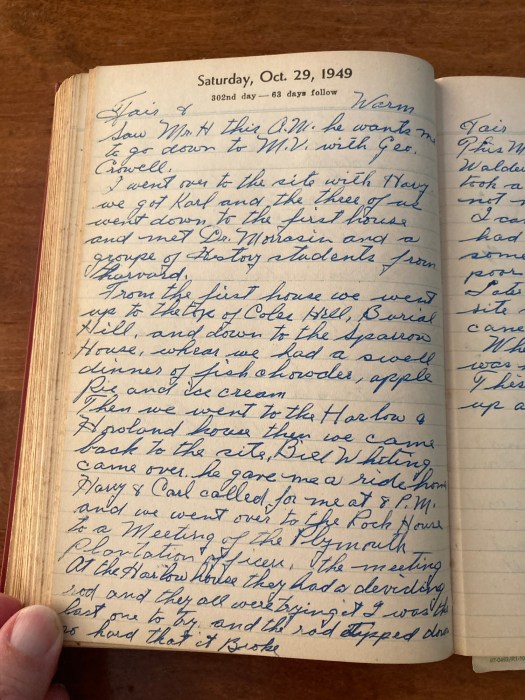 Saturday, Oct. 29, 1949
302nd day — 63 days follow
Fair & Warm
Saw Mr. H this A.M. he wants me
to go down to M.V. with Geo.
Crowell.
I went over to the site with Harry
we got Karl and, the three of us
went down to the first house
and met Dr. Morrison and a
groupe of History students from
Harvard.
From the first house we went
up to the top of Coles Hill, Burial
Hill, and down to the Sparrow
House, whear we had a swell
dinner of fish chowder, apple
Pie and ice cream
Then we went to the Harlow &
Howland house then we came
back to the site, Bill Whiting
came over. he gave me a ride home
Harry & Carl called for me at 8 P.M.
and we went over to the Rock House
to a Meeting of the Plymouth
Plantation officers, the meeting
At the Harlow house they had a deviding
rod and they all were trying it I was the
last one to try, and the rod dipped down
so hard that it Broke
Fair
This M
Walde
took a
not
I ca
had
some
poor
Late
site
came
Wh
was
Thes
up a